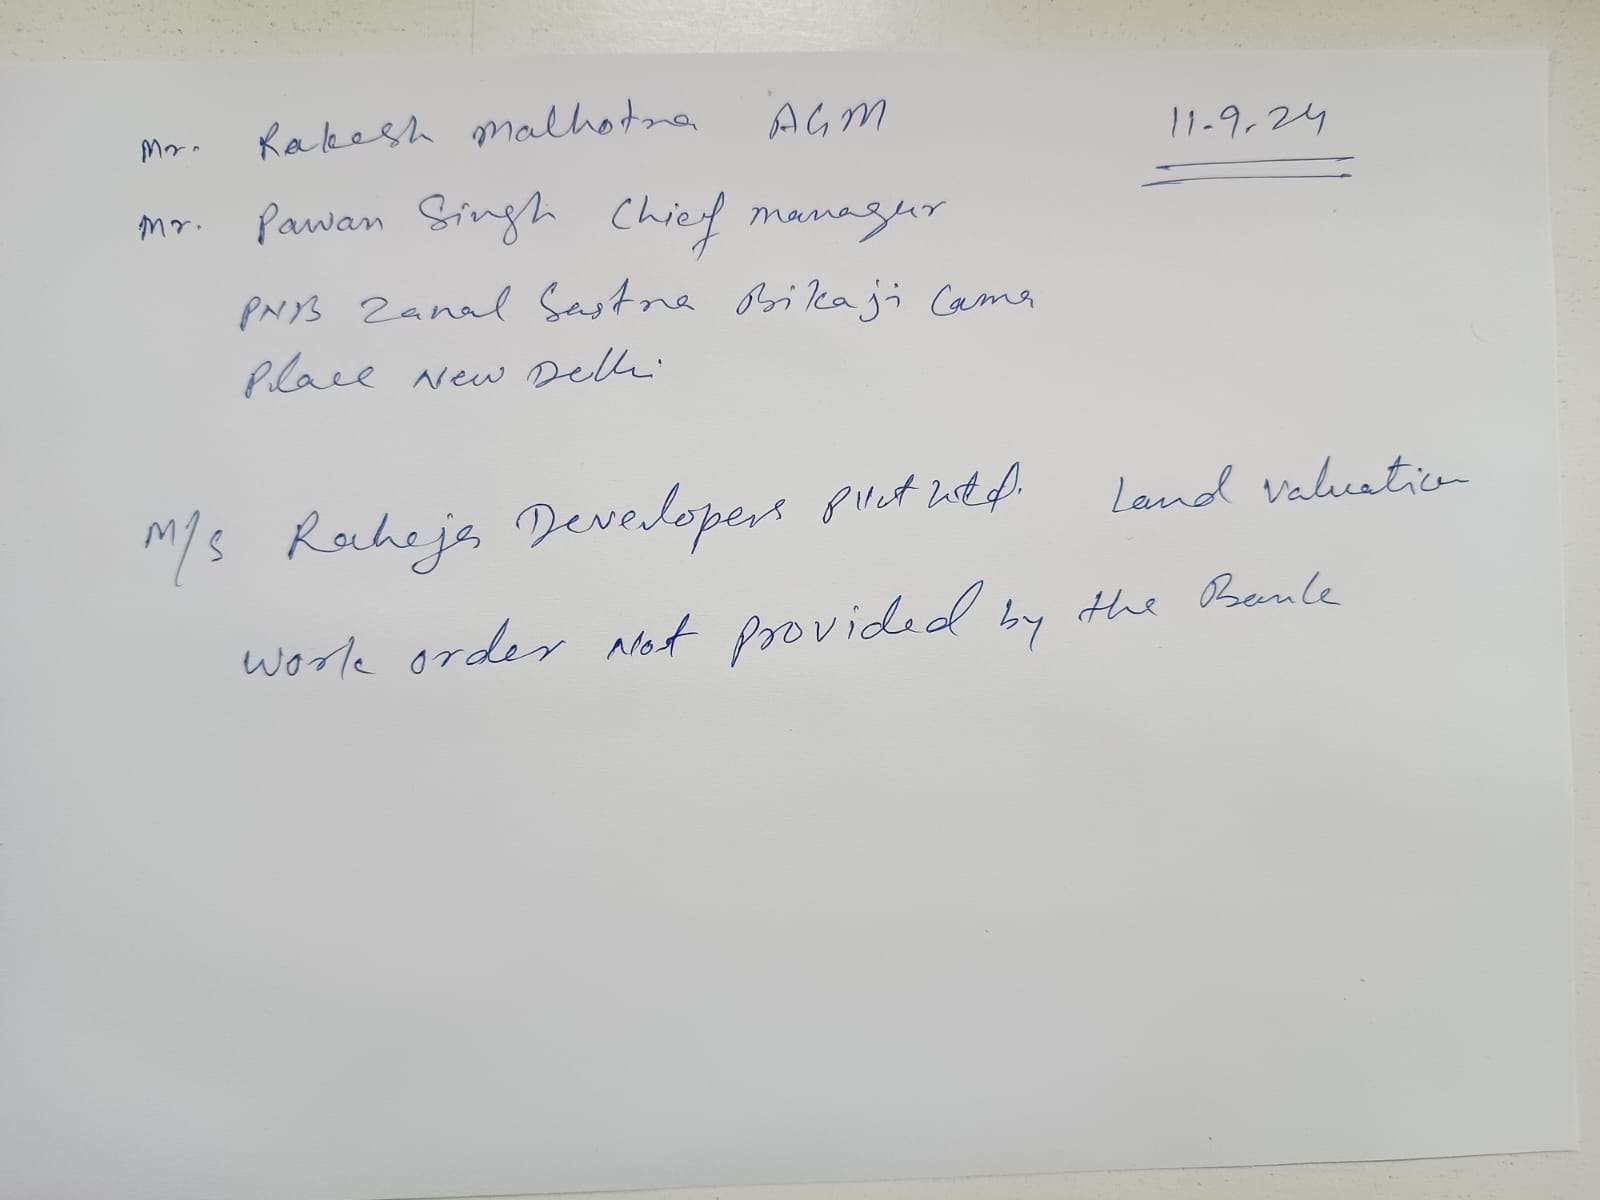 Mr. Rakesh Malhotra AGM 11.9.24
Mr. Pawan Singh Chief manager
PNB Zanal Sastra Bikaji Cama
Place New Delhi
M/s Raheja Developers Pvt Ltd. Land Valuation
Work order Not Provided by the Bank